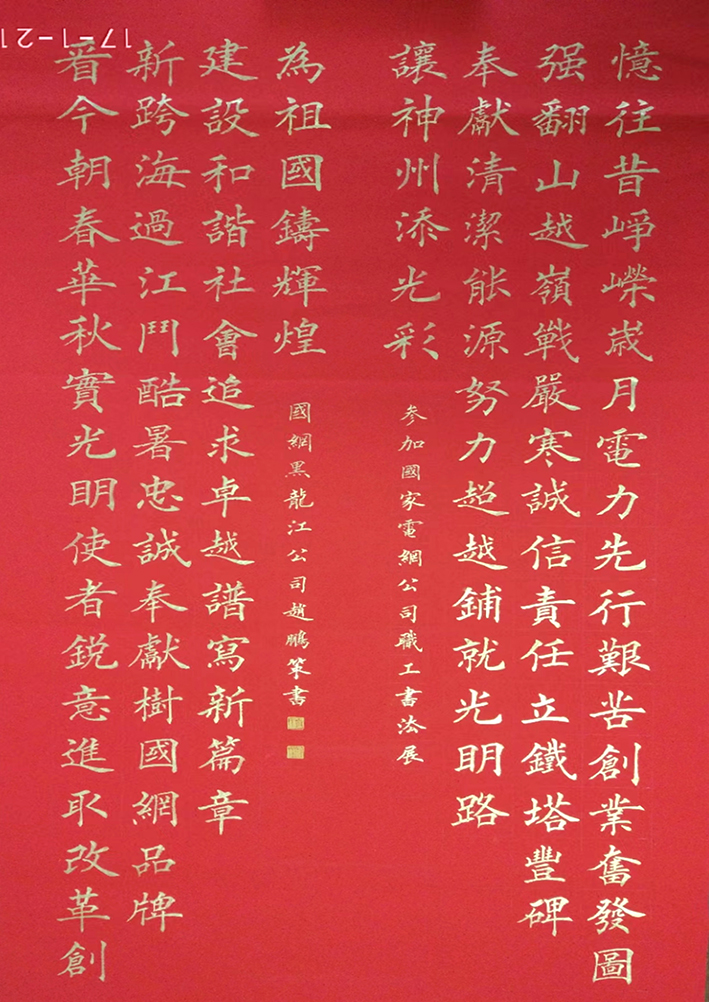 憶往昔崢嶸歲月電力先行艱苦創業奮發圖
强翻山越嶺戰嚴寒誠信責任立鐵塔豐碑
奉獻清潔能源努力超越鋪就光明路
讓神州添光彩
参加國家電網公司職工書法展
看今朝春華秋實光明使者銳意進取改革創
新跨海過江鬥酷暑忠誠奉獻樹國網品牌
建設和諧社會追求卓越譜寫新篇章
為祖國鑄輝煌
國網黑龍江公司趙鵬策書